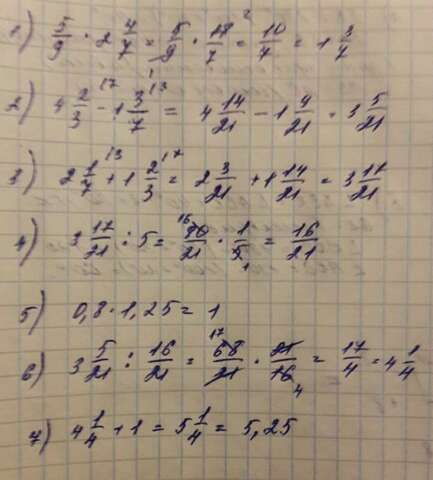 1) 5/9 · 2 4/7 = 5/9 · 18/7 = 10/7 = 1 3/7
2) 4 2/3 - 1 3/7 = 4 14/21 - 1 9/21 = 3 5/21
3) 2 1/7 + 1 2/3 = 2 3/21 + 1 14/21 = 3 17/21
4) 3 17/21 : 5 = 80/21 · 1/5 = 16/21
5) 0,8 · 1,25 = 1
6) 3 5/21 : 16/21 = 68/21 · 21/16 = 17/4 = 4 1/4
7) 4 1/4 + 1 = 5 1/4 = 5,25